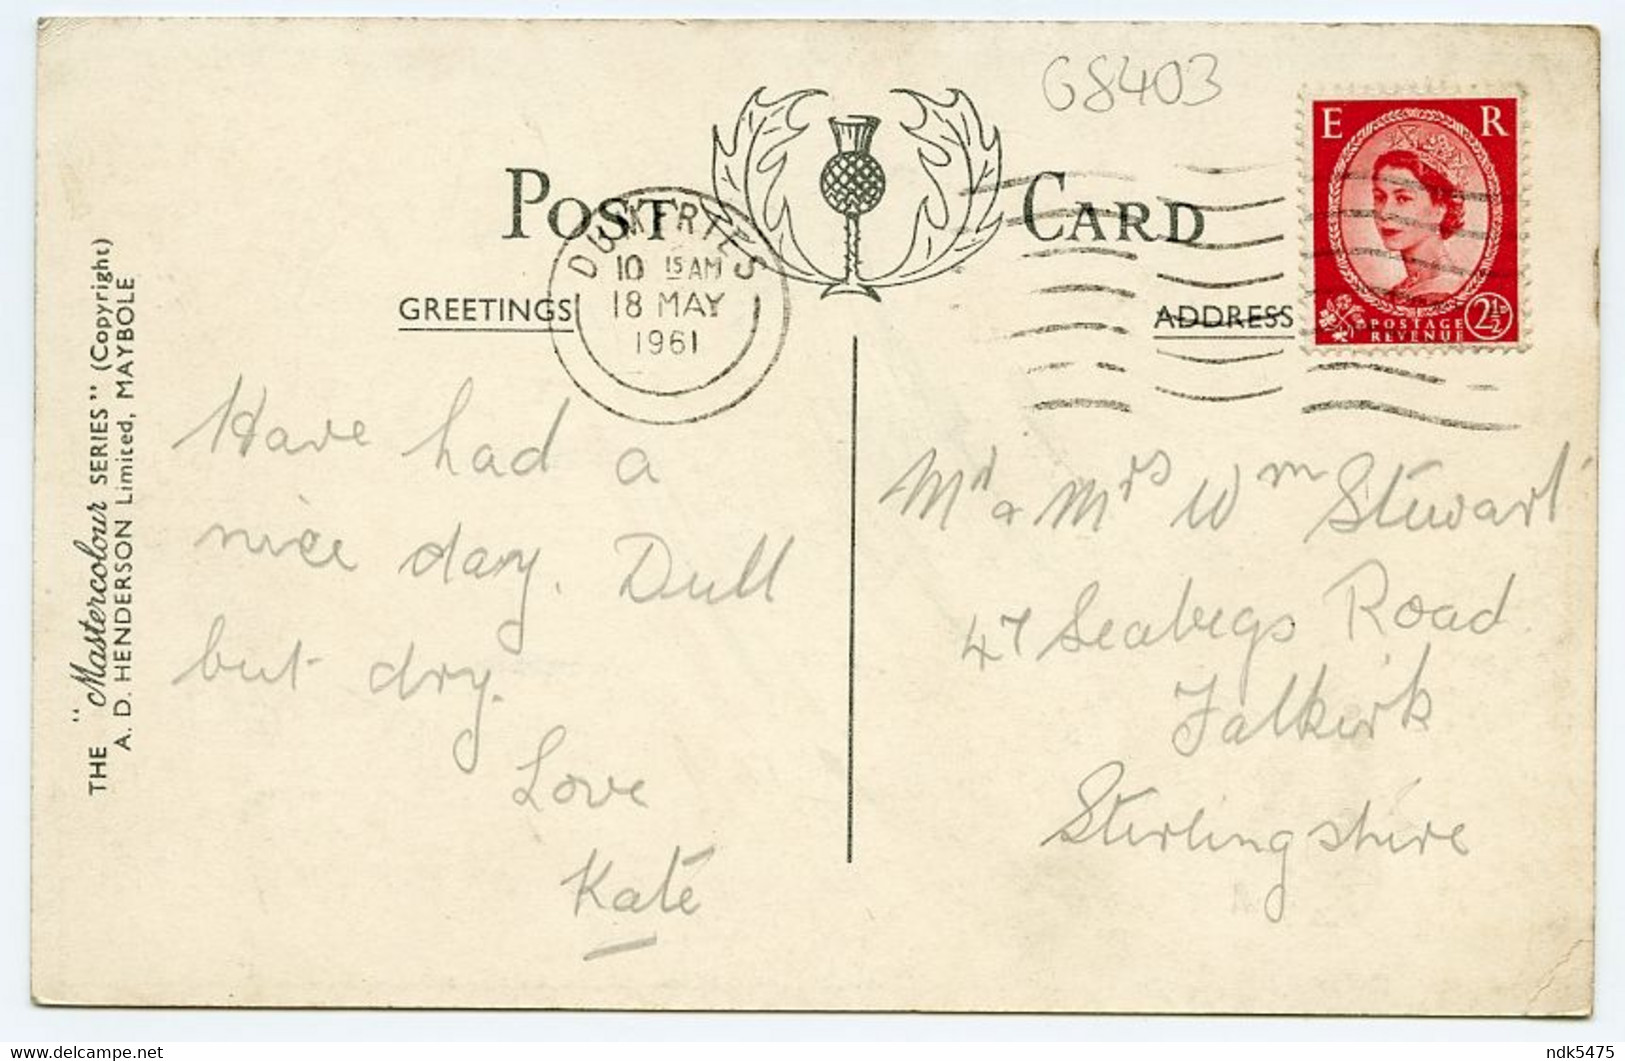 G8403
POST CARD
E R
POSTAGE
REVENUE
2½D
DUMFRIES
10 15 AM
18 MAY
1961
GREETINGS
ADDRESS
THE "Mastercolour SERIES" (Copyright)
A. D. HENDERSON Limited, MAYBOLE
Have had a
nice day. Dull
but dry.
Love
Kate
Mr & Mrs Wm Stewart
47 Seabegs Road
Falkirk
Stirlingshire
ndk5475